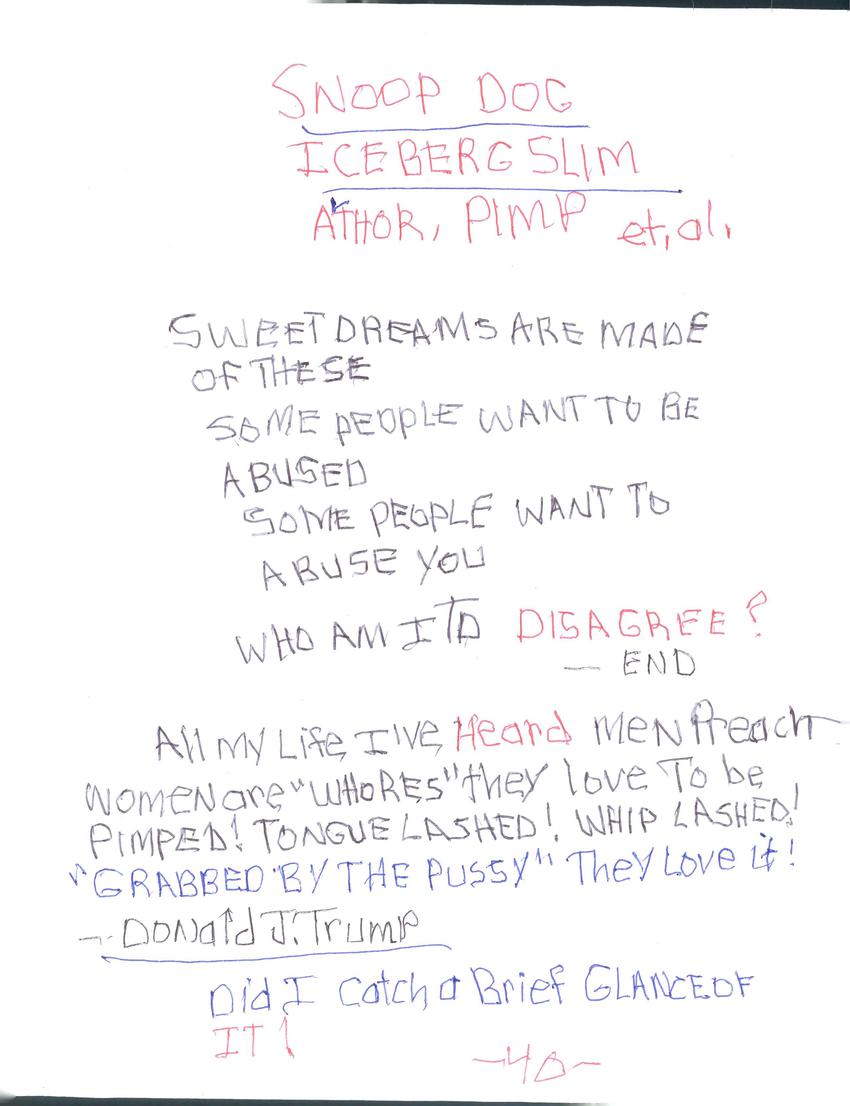 SNOOP DOG
ICEBERG SLIM
ATHOR, PIMP et, al.
SWEET DREAMS ARE MADE
OF THESE
SOME PEOPLE WANT TO BE
ABUSED
SOME PEOPLE WANT TO
ABUSE YOU
WHO AM I TO DISAGREE?
— END
All my Life, I've, Heard MEN Preach
WOMEN are "WHORES" they love To be
PIMPED! TONGUE LASHED! WHIP LASHED!
"GRABBED BY THE PUSSY" They Love it!
- Donald J. Trump
Did I Catch a Brief GLANCE OF
IT!
-40-